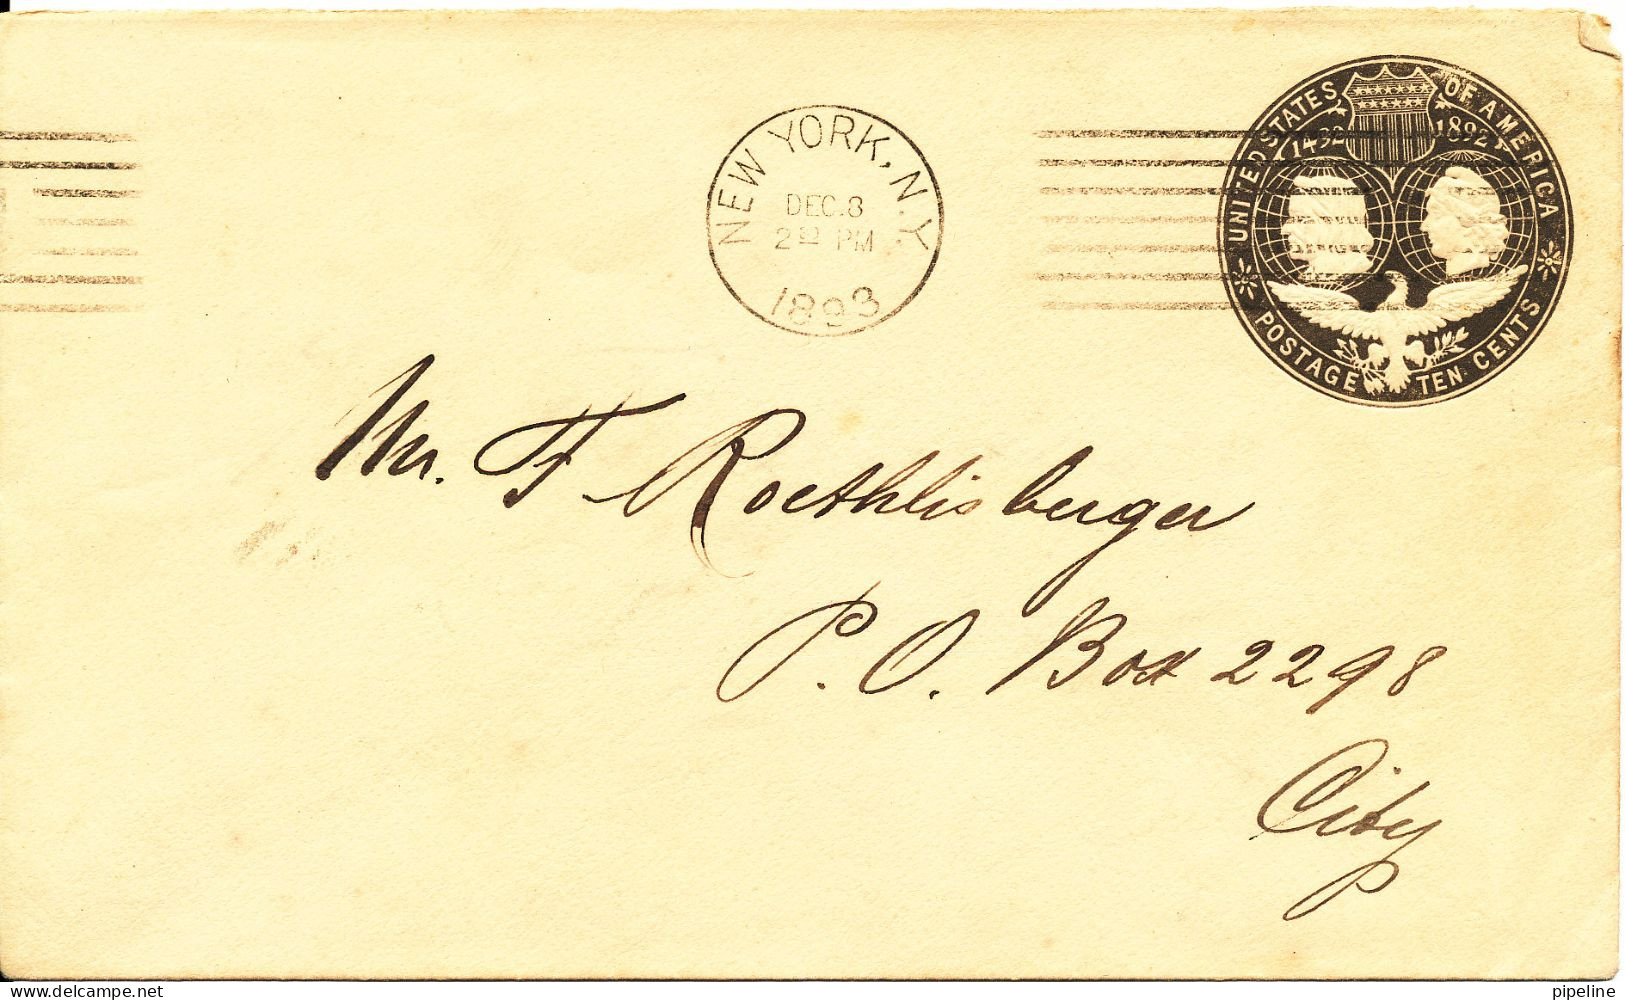 NEW YORK, N.Y.
DEC. 8
2 PM
1893
UNITED STATES OF AMERICA
1492 1892
POSTAGE TEN CENTS
Mr. F Roethlisberger
P. O. Box 2298
City
pipeline